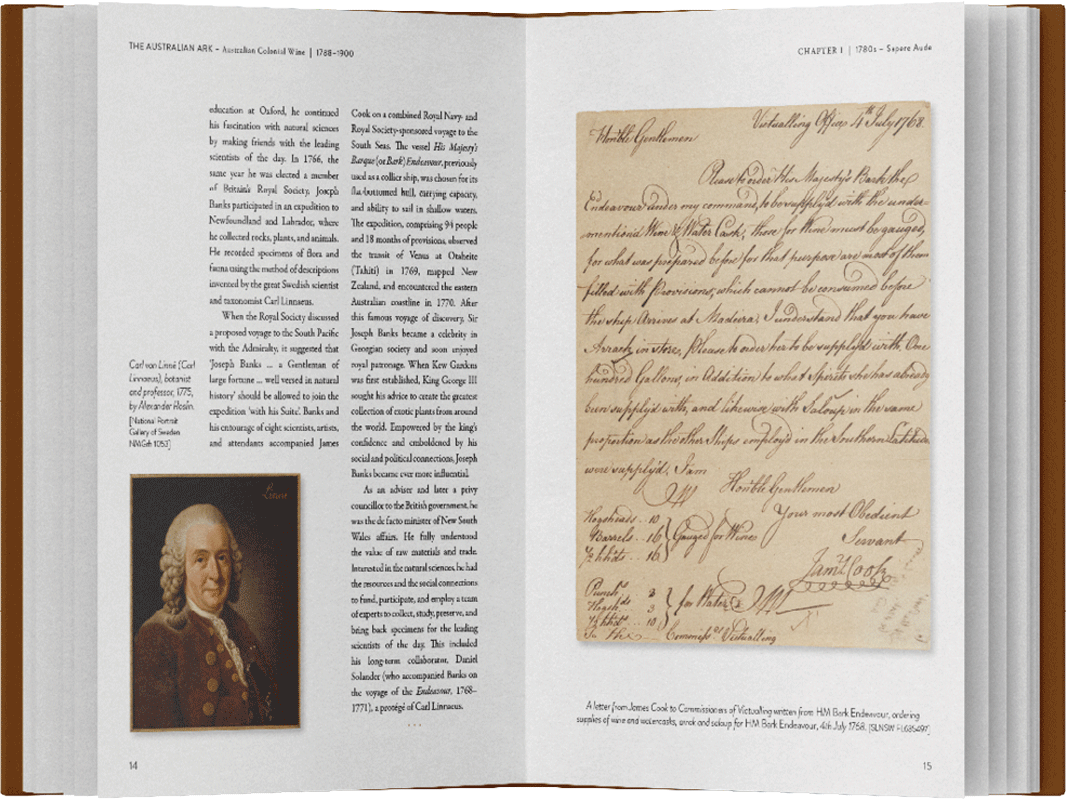 THE AUSTRALIAN ARK – Australian Colonial Wine | 1788–1900
education at Oxford, he continued
his fascination with natural sciences
by making friends with the leading
scientists of the day. In 1766, the
same year he was elected a member
of Britain's Royal Society, Joseph
Banks participated in an expedition to
Newfoundland and Labrador, where
he collected rocks, plants, and animals.
He recorded specimens of flora and
fauna using the method of descriptions
invented by the great Swedish scientist
and taxonomist Carl Linnaeus.
When the Royal Society discussed
a proposed voyage to the South Pacific
with the Admiralty, it suggested that
'Joseph Banks ... a Gentleman of
large fortune ... well versed in natural
history' should be allowed to join the
expedition 'with his Suite'. Banks and
his entourage of eight scientists, artists,
and attendants accompanied James
Carl von Linné (Carl
Linnaeus), botanist
and professor, 1775,
by Alexander Roslin.
[National Portrait
Gallery of Sweden
NMGrh 1053]
Cook on a combined Royal Navy- and
Royal Society-sponsored voyage to the
South Seas. The vessel His Majesty's
Barque (or Bark) Endeavour, previously
used as a collier ship, was chosen for its
flat-bottomed hull, carrying capacity,
and ability to sail in shallow waters.
The expedition, comprising 94 people
and 18 months of provisions, observed
the transit of Venus at Otaheite
(Tahiti) in 1769, mapped New
Zealand, and encountered the eastern
Australian coastline in 1770. After
this famous voyage of discovery, Sir
Joseph Banks became a celebrity in
Georgian society and soon enjoyed
royal patronage. When Kew Gardens
was first established, King George III
sought his advice to create the greatest
collection of exotic plants from around
the world. Empowered by the king's
confidence and emboldened by his
social and political connections, Joseph
Banks became ever more influential.
As an adviser and later a privy
councillor to the British government, he
was the de facto minister of New South
Wales affairs. He fully understood
the value of raw materials and trade.
Interested in the natural sciences, he had
the resources and the social connections
to fund, participate, and employ a team
of experts to collect, study, preserve, and
bring back specimens for the leading
scientists of the day. This included
his long-term collaborator, Daniel
Solander (who accompanied Banks on
the voyage of the Endeavour, 1768–
1771), a protégé of Carl Linnaeus.
...
14
CHAPTER 1 | 1780s – Sapere Aude
Victualling Office 4th July 1768
Honble Gentlemen
Please to order His Majesty's Bark the
Endeavour under my command, to be supply'd with the under-
mentiond Wine & Water Cask, those for Wine must be gauged,
for what was prepared before for that purpose are most of them
filled with Provisions, which cannot be consumed before
the ship Arrives at Madeira, I understand that you have
Arrack in store, Please to order her to be supply'd with, One
hundred Gallons, in Addition to what Spirits she has already
been supply'd with, and likewise with Saloup in the same
proportion as the other Ships employ'd in the Southern Latitudes
were supply'd. I am
Honble Gentlemen
Your most Obedient
Servant
Jams Cook
Hogsheads .. 10
Barrels .. 16
½ hhds .. 16
Gauged for Wine
Punchs 3
Hogshds 3
½ hhds .. 10
for Water
To the Commissrs Victualling
A letter from James Cook to Commissioners of Victualling written from H.M Bark Endeavour, ordering
supplies of wine and watercasks, arrak and saloup for HM Bark Endeavour, 4th July 1768. [SLNSW FL685497]
15